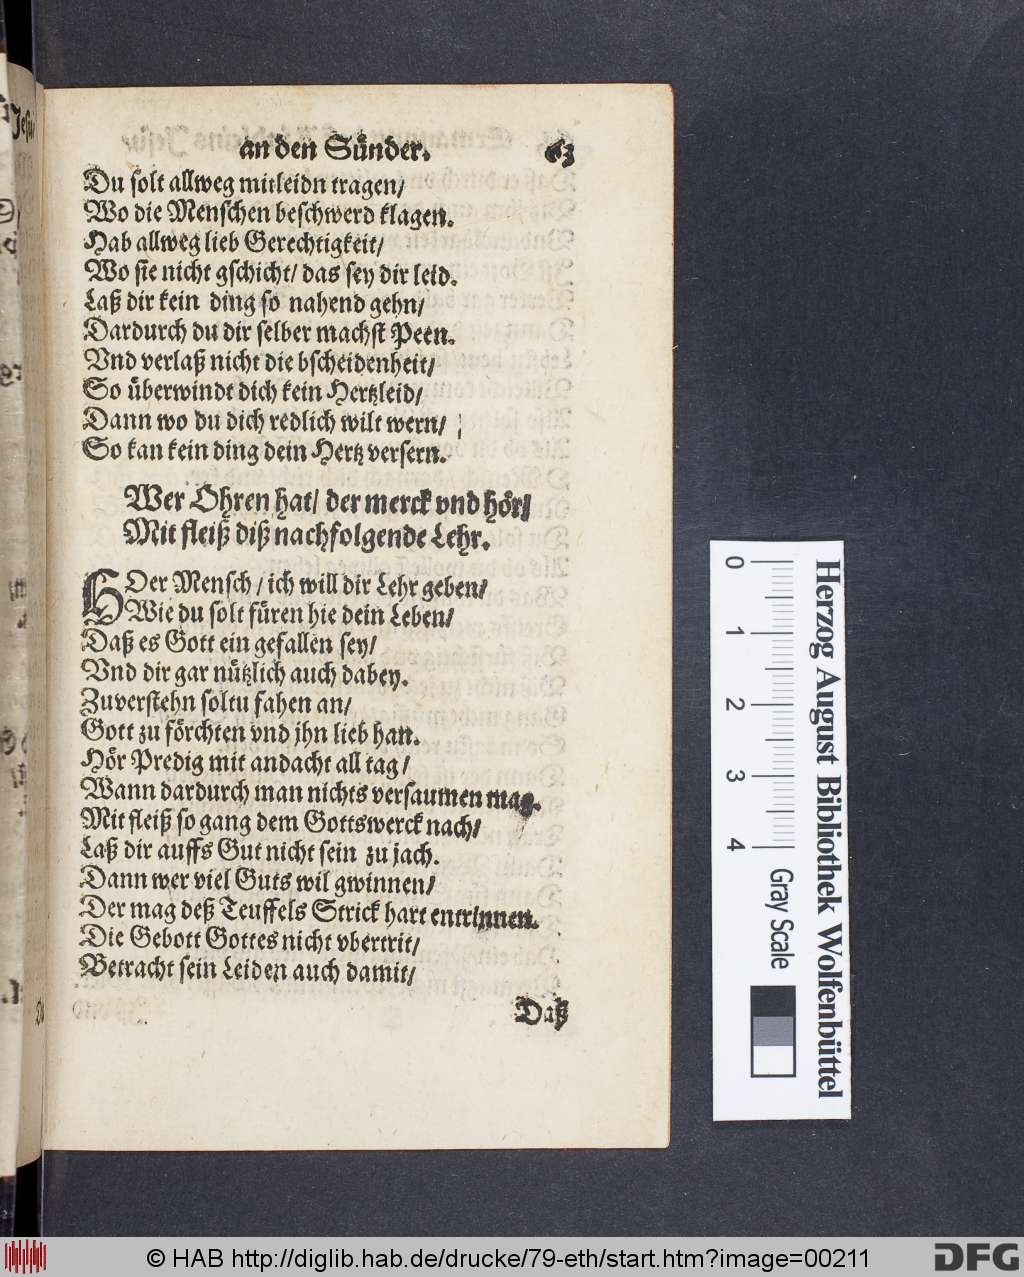 an den Sünder. 63
Du solt allweg mitleidn tragen/
Wo die Menschen beschwerd klagen.
Hab allweg lieb Gerechtigkeit/
Wo sie nicht gschicht/ das sey dir leid.
Laß dir kein ding so nahend gehn/
Dardurch du dir selber machst Peen.
Vnd verlaß nicht die bscheidenheit/
So überwindt dich kein Hertzleid/
Dann wo du dich redlich wilt wern/
So kan kein ding dein Hertz versern.
Wer Ohren hat/ der merck vnd hör/
Mit fleiß diß nachfolgende Lehr.
HOer Mensch/ ich will dir Lehr geben/
Wie du solt füren hie dein Leben/
Daß es Gott ein gefallen sey/
Vnd dir gar nützlich auch dabey.
Zuverstehn soltu fahen an/
Gott zu förchten vnd jhn lieb han.
Hör Predig mit andacht all tag/
Wann dardurch man nichts versaumen mag.
Mit fleiß so gang dem Gottswerck nach/
Laß dir auffs Gut nicht sein zu jach.
Dann wer viel Guts wil gwinnen/
Der mag deß Teuffels Strick hart entrinnen.
Die Gebott Gottes nicht vbertrit/
Betracht sein Leiden auch damit/
Daß
Herzog August Bibliothek Wolfenbüttel
0 1 2 3 4
Gray Scale
© HAB http://diglib.hab.de/drucke/79-eth/start.htm?image=00211
DFG